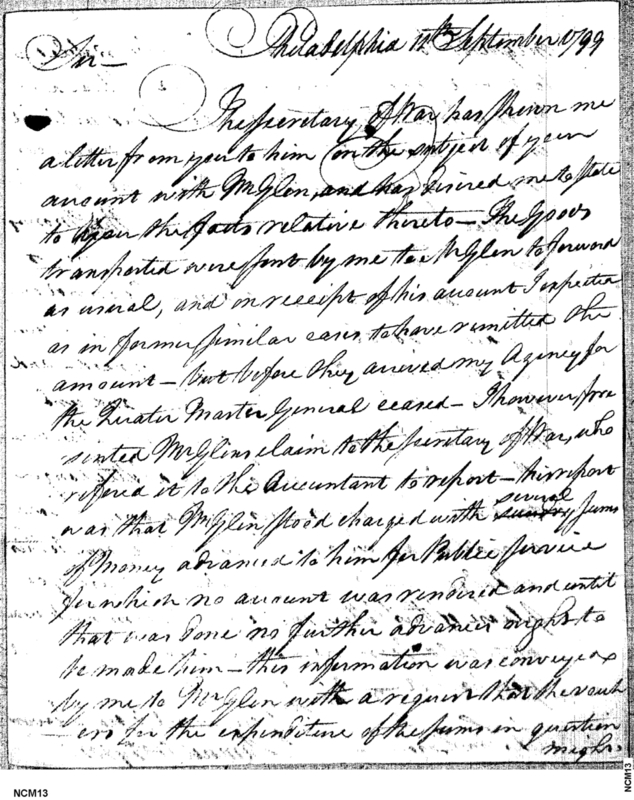 Philadelphia 11th September 1799
Sir —
The Secretary of War has shewn me
a letter from you to him on the subject of your
account with Mr Glen, and has desired me to state
to you the facts relative thereto — The Goods
transported were sent by me to Mr Glen to forward
as usual, and on receipt of his account I expected
as in former similar cases to have remitted the
amount — but before they arrived my Agency for
the Quarter Master General ceased — I however, pre
sented Mr Glens claim to the Secretary of War, who
refered it to the Accountant to report — his report
was that Mr Glen stood charged with several sums
of Money advanced to him for Public Service
for which no account was rendered and until
that was done no further advances ought to
be made him — this information was conveyed
by me to Mr Glen with a request that the vouch
— ers for the expenditure of the sums in question
might.
NCM13
NCM13